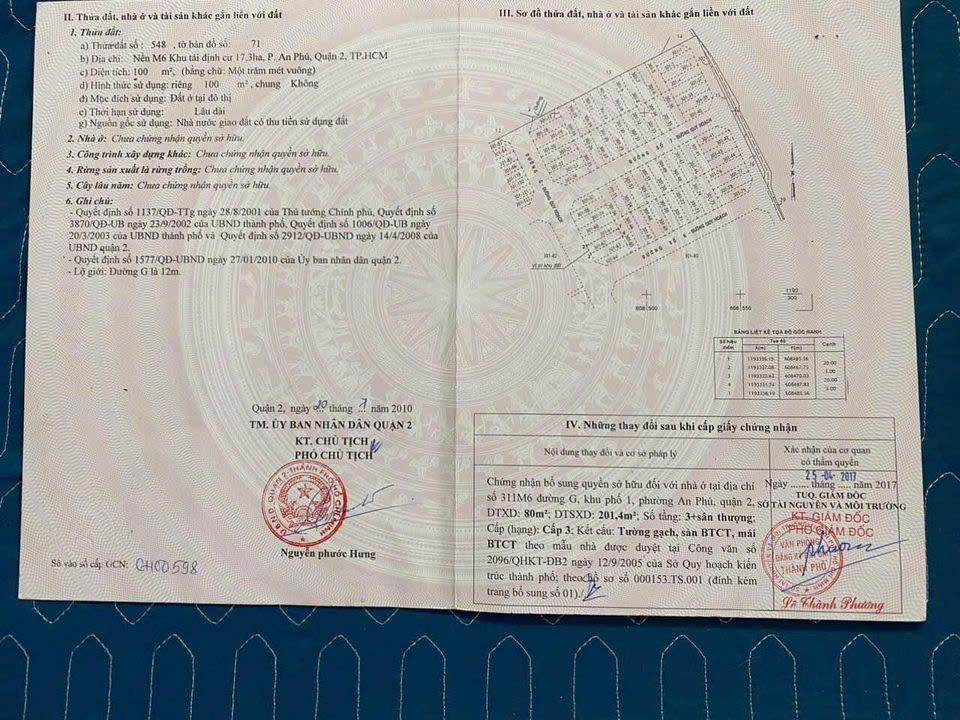 II. Thửa đất, nhà ở và tài sản khác gắn liền với đất
1. Thửa đất:
a) Thửa đất số : 548 , tờ bản đồ số: 71
b) Địa chỉ: Nền M6 Khu tái định cư 17,3ha, P. An Phú, Quận 2, TP.HCM
c) Diện tích: 100 m², (bằng chữ: Một trăm mét vuông)
d) Hình thức sử dụng: riêng 100 m², chung Không
đ) Mục đích sử dụng: Đất ở tại đô thị
e) Thời hạn sử dụng: Lâu dài
g) Nguồn gốc sử dụng: Nhà nước giao đất có thu tiền sử dụng đất
2. Nhà ở: Chưa chứng nhận quyền sở hữu.
3. Công trình xây dựng khác: Chưa chứng nhận quyền sở hữu.
4. Rừng sản xuất là rừng trồng: Chưa chứng nhận quyền sở hữu.
5. Cây lâu năm: Chưa chứng nhận quyền sở hữu.
6. Ghi chú:
- Quyết định số 1137/QĐ-TTg ngày 28/8/2001 của Thủ tướng Chính phủ, Quyết định số
3870/QĐ-UB ngày 23/9/2002 của UBND thành phố, Quyết định số 1006/QĐ-UB ngày
20/3/2003 của UBND thành phố và Quyết định số 2912/QĐ-UBND ngày 14/4/2008 của
UBND quận 2.
- Quyết định số 1577/QĐ-UBND ngày 27/01/2010 của Ủy ban nhân dân quận 2.
- Lộ giới: Đường G là 12m.
Quận 2, ngày 20 tháng 7 năm 2010
TM. ỦY BAN NHÂN DÂN QUẬN 2
KT. CHỦ TỊCH
PHÓ CHỦ TỊCH
U.B.N.D. QUẬN 2 - THÀNH PHỐ HỒ CHÍ MINH
Nguyễn phước Hưng
Số vào sổ cấp GCN: CH00598
III. Sơ đồ thửa đất, nhà ở và tài sản khác gắn liền với đất
ĐƯỜNG SỐ
ĐƯỜNG QUY HOẠCH
ĐƯỜNG SỐ 8 ĐƯỜNG QUY HOẠCH
301-42
301-40
Vị trí khu đất
608 500
608 550
1193
300
BẢNG LIỆT KÊ TỌA ĐỘ GÓC RANH
Số hiệu điểm Tọa độ Cạnh
X(m) Y(m)
1 1193336.19 608485.56
20.00
2 1193327.08 608467.75
5.00
3 1193322.63 608470.03
20.00
4 1193331.74 608487.83
5.00
1 1193336.19 608485.56
IV. Những thay đổi sau khi cấp giấy chứng nhận
Nội dung thay đổi và cơ sở pháp lý
Xác nhận của cơ quan
có thẩm quyền
Chứng nhận bổ sung quyền sở hữu đối với nhà ở tại địa chỉ
số 311M6 đường G, khu phố 1, phường An Phú, quận 2,
DTXD: 80m²; DTSXD: 201,4m²; Số tầng: 3+sân thượng;
Cấp (hạng): Cấp 3; Kết cấu: Tường gạch, sàn BTCT, mái
BTCT theo mẫu nhà được duyệt tại Công văn số
2096/QHKT-ĐB2 ngày 12/9/2005 của Sở Quy hoạch kiến
trúc thành phố; theo hồ sơ số 000153.TS.001 (đính kèm
trang bổ sung số 01)./.
25 -04- 2017
Ngày ...... tháng ..... năm 2017
TUQ. GIÁM ĐỐC
SỞ TÀI NGUYÊN VÀ MÔI TRƯỜNG
KT. GIÁM ĐỐC
PHÓ GIÁM ĐỐC
VĂN PHÒNG
ĐĂNG KÝ ĐẤT ĐAI
THÀNH PHỐ
Lê Thành Phương